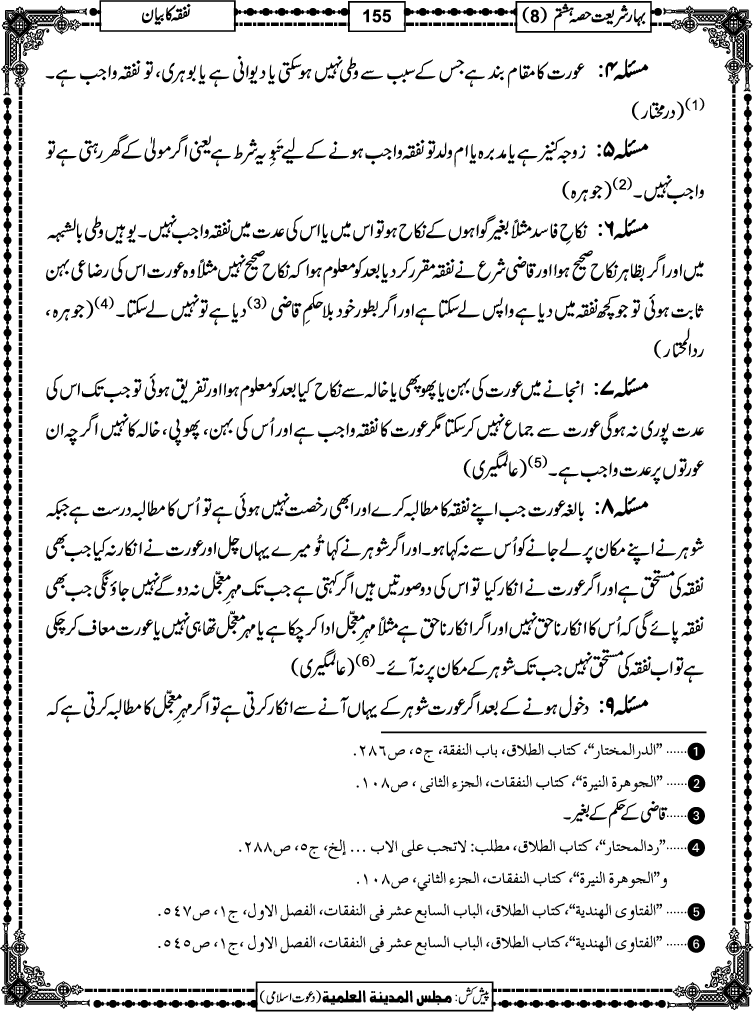 بہار شریعت حصہ ہشتم (8)
155
نفقہ کا بیان
مسئلہ ۴: عورت کا مقام بند ہے جس کے سبب سے وطی نہیں ہوسکتی یا دیوانی ہے یا بوہری، تو نفقہ واجب ہے۔
(1) (درمختار)
مسئلہ ۵: زوجہ کنیز ہے یا مدبرہ یا ام ولد تو نفقہ واجب ہونے کے لیے تَبْوِیہ شرط ہے یعنی اگر مولیٰ کے گھر رہتی ہے تو
واجب نہیں۔ (2) (جوہرہ)
مسئلہ ۶: نکاحِ فاسد مثلاً بغیر گواہوں کے نکاح ہو تو اس میں یا اس کی عدت میں نفقہ واجب نہیں۔ یوہیں وطی بالشبہہ
میں اور اگر بظاہر نکاح صحیح ہوا اور قاضی شرع نے نفقہ مقرر کر دیا بعد کو معلوم ہوا کہ نکاح صحیح نہیں مثلاً وہ عورت اس کی رضاعی بہن
ثابت ہوئی تو جو کچھ نفقہ میں دیا ہے واپس لے سکتا ہے اور اگر بطور خود بلا حکمِ قاضی (3) دیا ہے تو نہیں لے سکتا۔ (4) (جوہرہ،
ردالمحتار)
مسئلہ ۷: انجانے میں عورت کی بہن یا پھوپھی یا خالہ سے نکاح کیا بعد کو معلوم ہوا اور تفریق ہوئی تو جب تک اس کی
عدت پوری نہ ہوگی عورت سے جماع نہیں کرسکتا مگر عورت کا نفقہ واجب ہے اور اُس کی بہن، پھوپی، خالہ کا نہیں اگرچہ ان
عورتوں پر عدت واجب ہے۔ (5) (عالمگیری)
مسئلہ ۸: بالغہ عورت جب اپنے نفقہ کا مطالبہ کرے اور ابھی رخصت نہیں ہوئی ہے تو اُس کا مطالبہ درست ہے جبکہ
شوہر نے اپنے مکان پر لے جانے کو اُس سے نہ کہا ہو۔ اور اگر شوہر نے کہا تُو میرے یہاں چل اور عورت نے انکار نہ کیا جب بھی
نفقہ کی مستحق ہے اور اگر عورت نے انکار کیا تو اس کی دو صورتیں ہیں اگر کہتی ہے جب تک مہر معجّل نہ دوگے نہیں جاؤنگی جب بھی
نفقہ پائے گی کہ اُس کا انکار ناحق نہیں اور اگر انکار ناحق ہے مثلاً مہر معجّل ادا کر چکا ہے یا مہر معجّل تھا ہی نہیں یا عورت معاف کر چکی
ہے تو اب نفقہ کی مستحق نہیں جب تک شوہر کے مکان پر نہ آئے۔ (6) (عالمگیری)
مسئلہ ۹: دخول ہونے کے بعد اگر عورت شوہر کے یہاں آنے سے انکار کرتی ہے تو اگر مہر معجّل کا مطالبہ کرتی ہے کہ
1 ...... "الدرالمختار"، کتاب الطلاق، باب النفقة، ج٥، ص٢٨٦.
2 ...... "الجوهرة النيرة"، کتاب النفقات، الجزء الثانی ، ص١٠٨.
3 ...... قاضی کے حکم کے بغیر۔
4 ...... "ردالمحتار"، کتاب الطلاق، مطلب: لاتجب علی الاب ... إلخ، ج٥، ص٢٨٨.
و"الجوهرة النيرة"، کتاب النفقات، الجزء الثاني، ص١٠٨.
5 ...... "الفتاوی الهندية"،کتاب الطلاق، الباب السابع عشر فی النفقات، الفصل الاول، ج١، ص٥٤٧.
6 ...... "الفتاوی الهندية"،کتاب الطلاق، الباب السابع عشر فی النفقات، الفصل الاول ،ج١، ص٥٤٥.
پیش کش: مجلس المدینة العلمية (دعوت اسلامی)